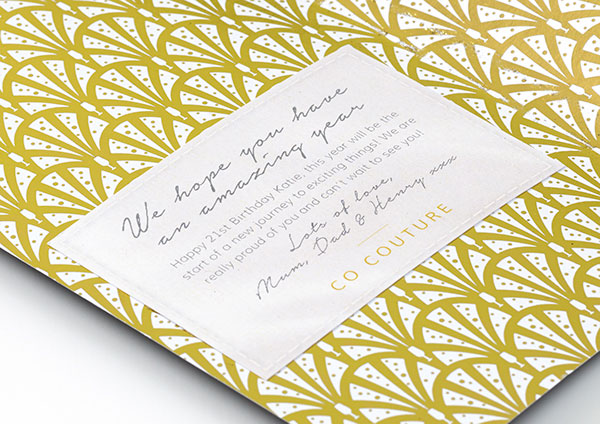 We hope you have
an amazing year
Happy 21st Birthday Katie, this year will be the
start of a new journey to exciting things! We are
really proud of you and can't wait to see you!
Lots of love,
Mum, Dad & Henry xxx
CO COUTURE